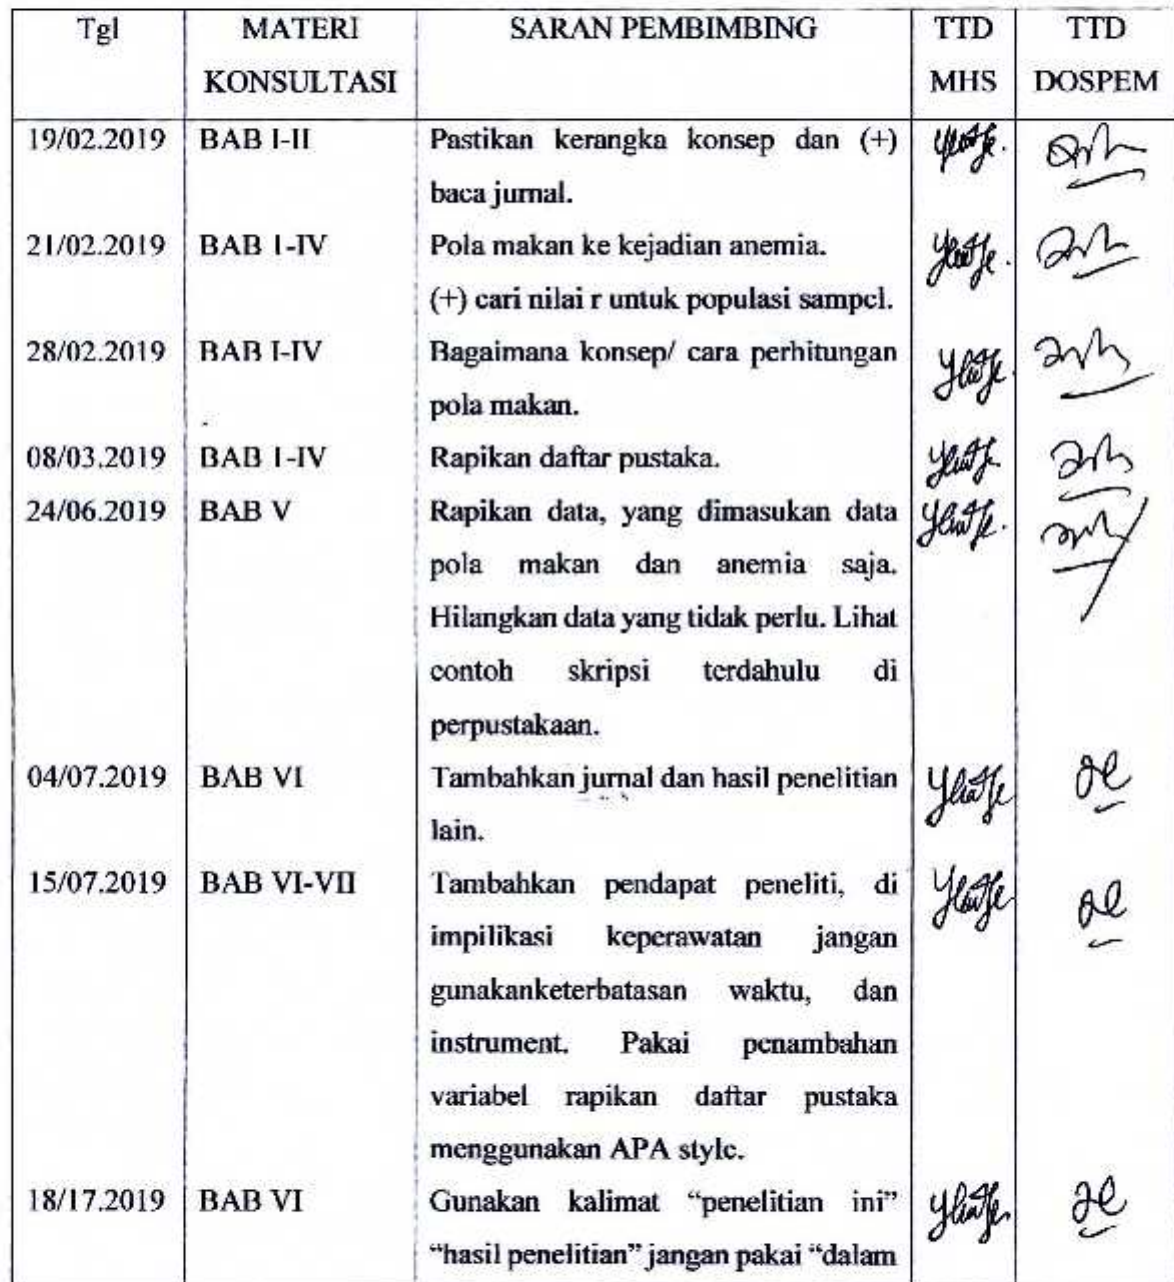 Tgl MATERI SARAN PEMBIMBING TTD TTD
KONSULTASI MHS DOSPEM
19/02.2019 BAB I-II Pastikan kerangka konsep dan (+)
baca jurnal.
21/02.2019 BAB I-IV Pola makan ke kejadian anemia.
(+) cari nilai r untuk populasi sampel.
28/02.2019 BAB I-IV Bagaimana konsep/ cara perhitungan
pola makan.
08/03.2019 BAB I-IV Rapikan daftar pustaka.
24/06.2019 BAB V Rapikan data, yang dimasukan data
pola makan dan anemia saja.
Hilangkan data yang tidak perlu. Lihat
contoh skripsi terdahulu di
perpustakaan.
04/07.2019 BAB VI Tambahkan jurnal dan hasil penelitian
lain.
15/07.2019 BAB VI-VII Tambahkan pendapat peneliti, di
impilikasi keperawatan jangan
gunakanketerbatasan waktu, dan
instrument. Pakai penambahan
variabel rapikan daftar pustaka
menggunakan APA style.
18/17.2019 BAB VI Gunakan kalimat “penelitian ini”
“hasil penelitian” jangan pakai “dalam